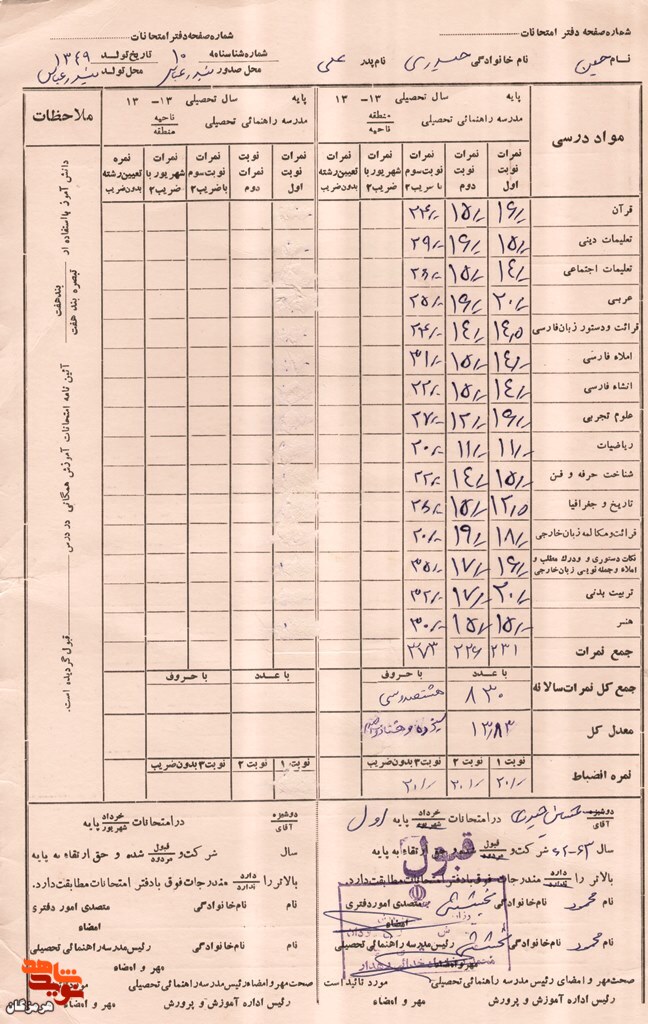 شماره صفحه دفتر امتحانات
شماره صفحه دفتر امتحانات
نام حسین نام خانوادگی حیدری نام پدر علی شماره شناسنامه ۱۰ تاریخ تولد ۱۳۴۹
محل صدور بندرعباس محل تولد بندرعباس
مواد درسی
پایه سال تحصیلی ۱۳– ۱۳
مدرسه راهنمائی تحصیلی منطقه ناحیه
نمرات نوبت اول
نمرات نوبت دوم
نمرات نوبت سوم با ضریب ۲
نمرات شهریور با ضریب ۲
نمرات تعیین رشته بدون ضریب
پایه سال تحصیلی ۱۳– ۱۳
مدرسه راهنمائی تحصیلی ناحیه منطقه
نمرات نوبت اول
نوبت نمرات دوم
نمرات نوبت سوم با ضریب ۲
نمرات شهریور با ضریب ۲
نمره تعیین رشته بدون ضریب
ملاحظات
دانش آموز با استفاده از بند هفت تبصره بند هفت آئین نامه امتحانات آموزش همگانی در درس قبول گردیده است.
قرآن ۱۶/ ۱۵/ ۲۴/
تعلیمات دینی ۱۵/ ۱۶/ ۲۹/
تعلیمات اجتماعی ۱۴/ ۱۵/ ۲۶/
عربی ۲۰/ ۱۹/ ۲۵/
قرائت و دستور زبان فارسی ۱۴/۵ ۱۴/ ۲۴/
املاء فارسی ۱۴/ ۱۵/ ۳۱/
انشاء فارسی ۱۴/ ۱۵/ ۲۲/
علوم تجربی ۱۶/ ۱۲/ ۲۷/
ریاضیات ۱۱/ ۱۱/ ۲۰/
شناخت حرفه و فن ۱۵/ ۱۴/ ۲۲/
تاریخ و جغرافیا ۱۲/۵ ۱۵/ ۲۶/
قرائت و مکالمه زبان خارجی ۱۸/ ۱۹/ ۲۰/
نکات دستوری و درک مطلب و املاء و جمله نویسی زبان خارجی ۱۶/ ۱۷/ ۳۵/
تربیت بدنی ۲۰/ ۱۷/ ۳۲/
هنر ۱۵/ ۱۵/ ۳۰/
جمع نمرات ۲۳۱ ۲۲۶ ۳۷۳
با عدد با حروف با عدد با حروف
جمع کل نمرات سالانه ۸۳۰ هشتصد و سی
معدل کل ۱۳/۸۳
نوبت ۱ نوبت ۲ نوبت ۳ بدون ضریب نوبت ۱ نوبت ۲ نوبت ۳ بدون ضریب
نمره انضباط ۲۰/ ۲۰/ ۲۰/
دوشیزه آقای حسین حیدری در امتحانات خرداد شهریور پایه اول
سال ۶۳-۶۲ شرکت و قبول مردود شده و حق ارتقاء به پایه
قبول
بالاتر را دارد ندارد مندرجات فوق با دفتر امتحانات مطابقت دارد.
نام محمود نام خانوادگی متصدی امور دفتری
امضاء
نام محمود نام خانوادگی رئیس مدرسه راهنمائی تحصیلی
مهر و امضاء
صحت مهر و امضای رئیس مدرسه راهنمائی تحصیلی مورد تائید است
رئیس اداره آموزش و پرورش مهر و امضاء
دوشیزه آقای در امتحانات خرداد شهریور پایه
سال شرکت و قبول مردود شده و حق ارتقاء به پایه
بالاتر را دارد ندارد مندرجات فوق با دفتر امتحانات مطابقت دارد.
نام نام خانوادگی متصدی امور دفتری
امضاء
نام نام خانوادگی رئیس مدرسه راهنمائی تحصیلی
مهر و امضاء
صحت مهر و امضاء رئیس مدرسه راهنمائی تحصیلی
رئیس اداره آموزش و پرورش مهر و امضاء
نوید شاهد
هرمزگان